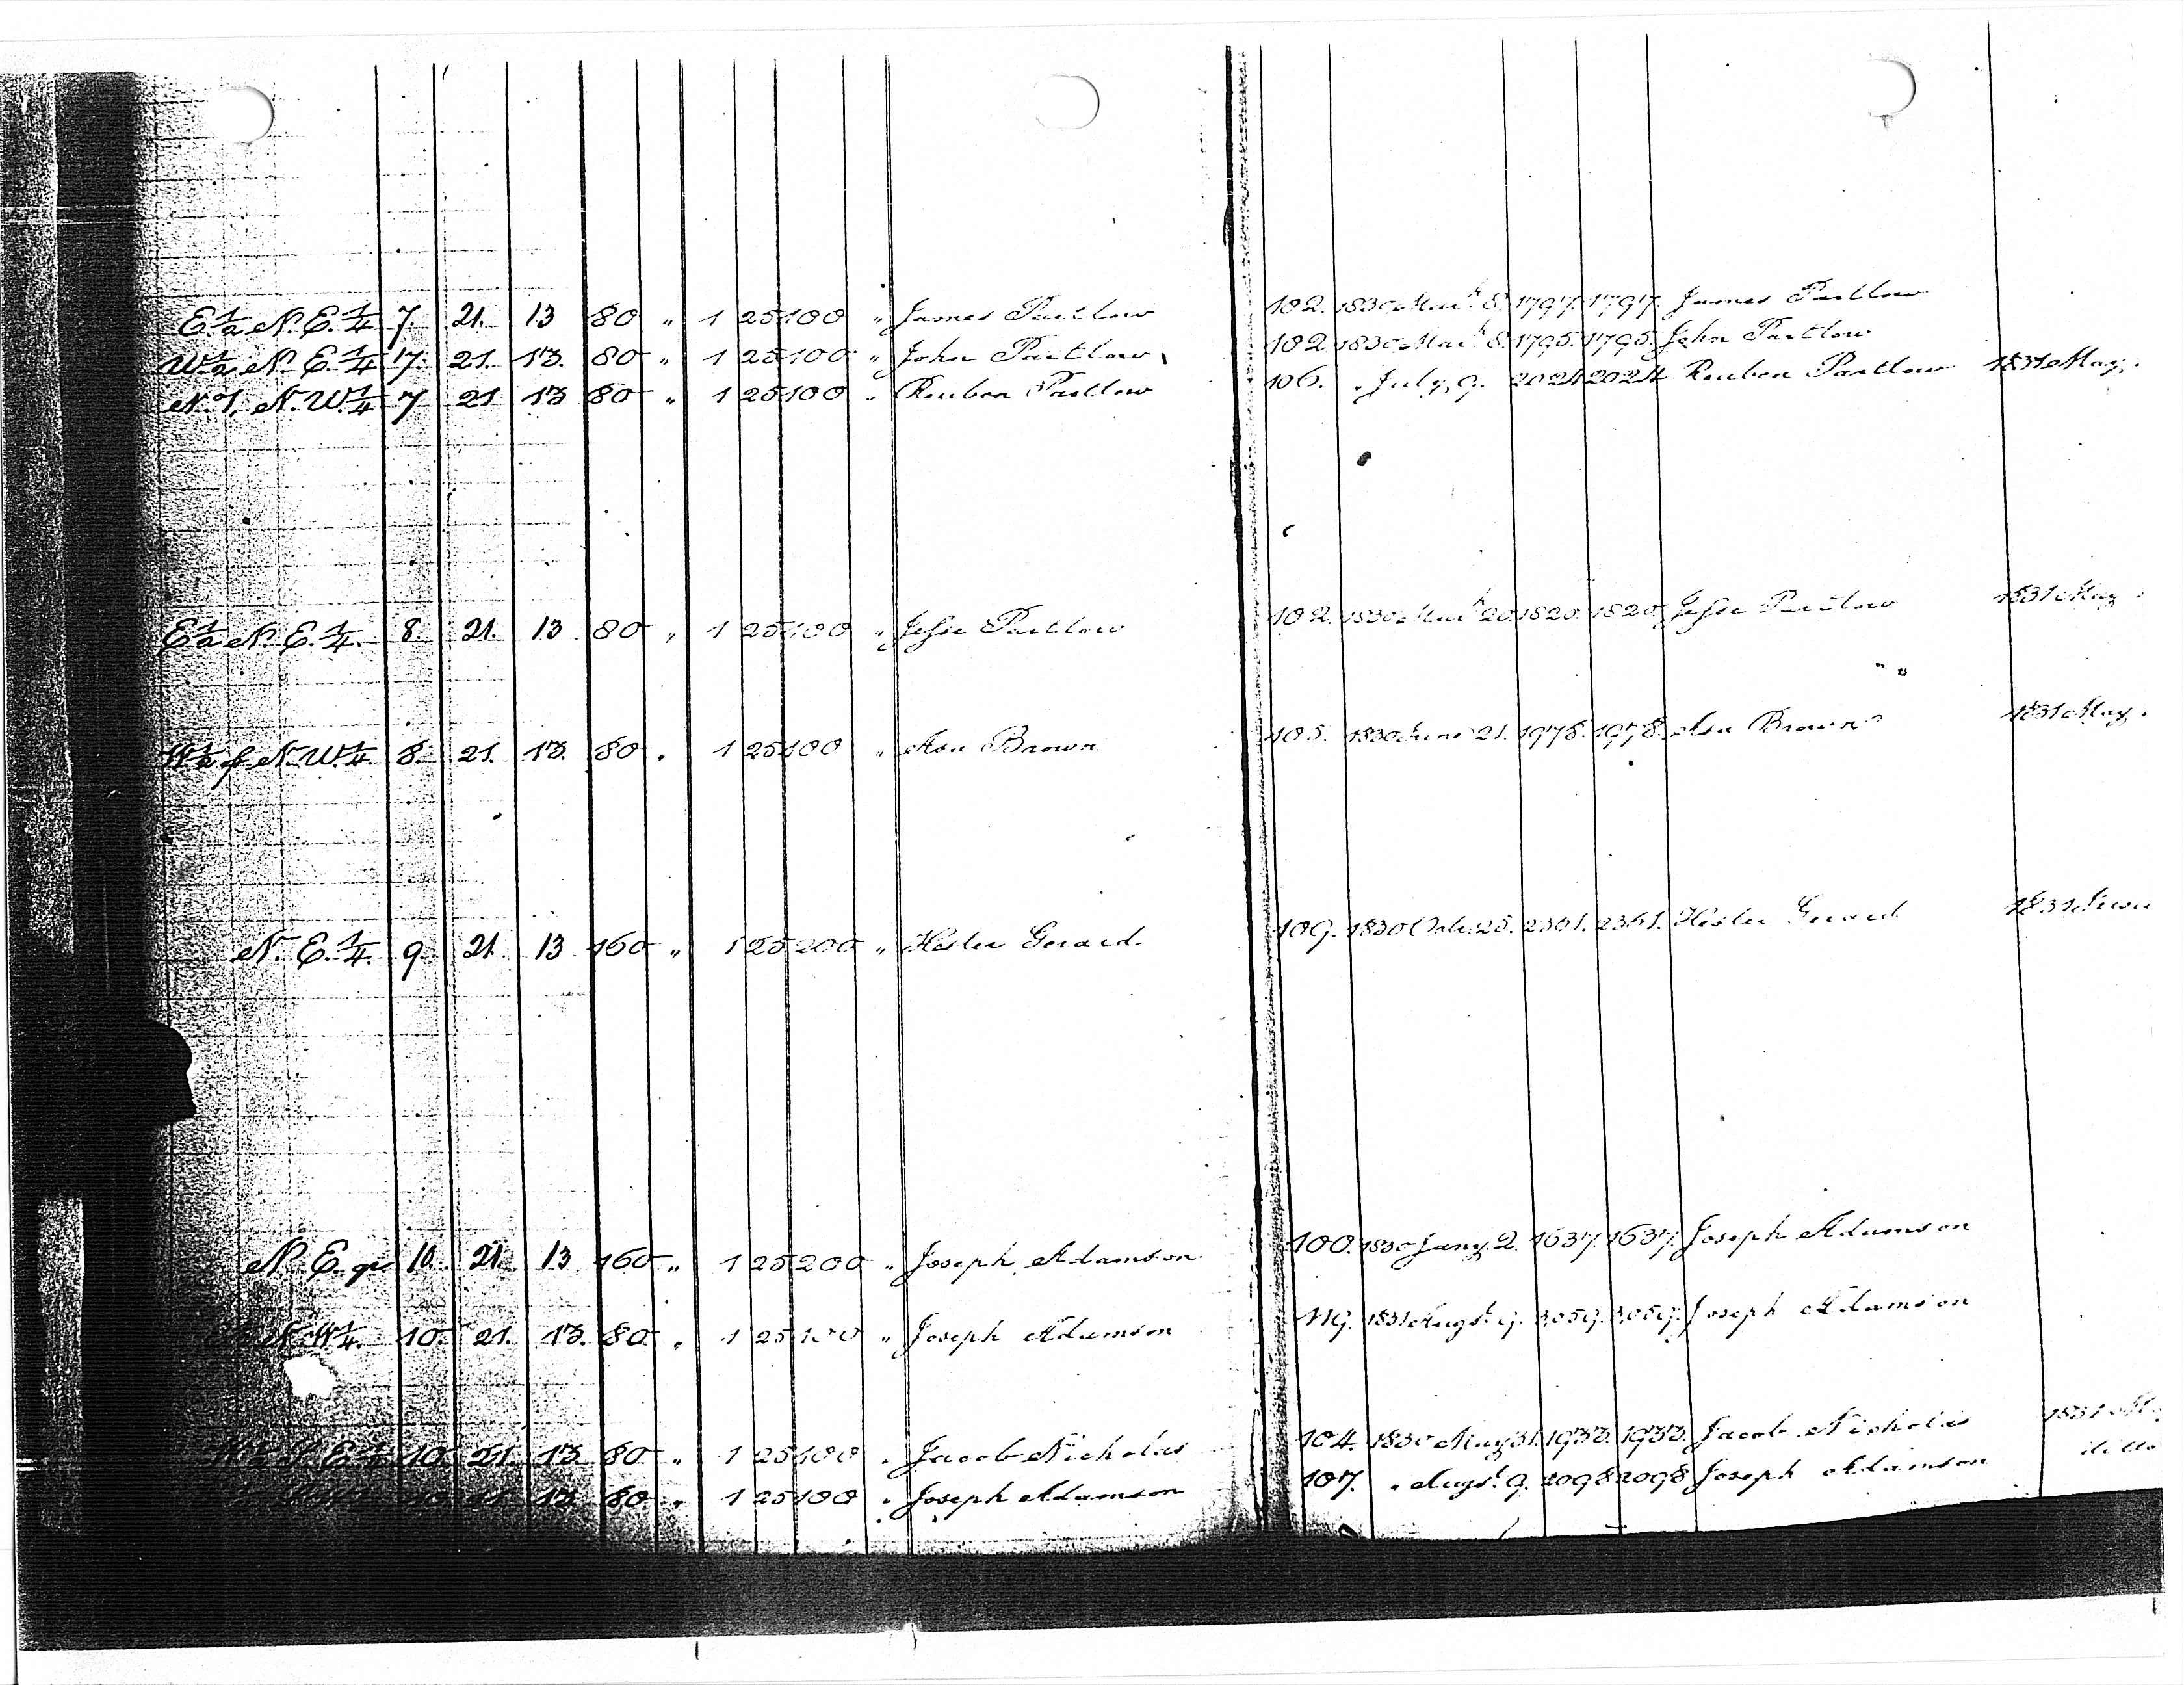 E ½ N. E. ¼ 7. 21. 13 80 " 1 25 100 " James Partlow 102. 1830 Mar. 8. 1797. 1797. James Partlow
W ½ N. E. ¼ 7. 21. 13. 80 " 1 25 100 " John Partlow 102. 1830 Mar. 8. 1795. 1795. John Partlow
N. W. ¼ 7 21 13 80 " 1 25 100 " Reuben Partlow 106. " July, 9. 2024 2024 Reuben Partlow 1831 May.
E ½ N. E. ¼. 8. 21. 13 80 " 1 25 100 " Jesse Partlow 102. 1830 Mar. 20. 1820. 1820. Jesse Partlow 1831 May
W ½ of N. W. ¼. 8. 21. 13. 80 " 1 25 100 " Asa Brown 105. 1830 June 21. 1978. 1978. Asa Brown 1831 May.
N. E. ¼. 9 21 13 160 " 1 25 200 " Hester Gerard 109. 1830 Oct. 25. 2361. 2361. Hester Gerard 1831
N. E. qr 10. 21. 13 160 " 1 25 200 " Joseph Adamson 100. 1830 Jany. 2. 1637. 1637. Joseph Adamson
N. W. ¼. 10. 21. 13. 80 " 1 25 100 " Joseph Adamson 119. 1831 Augst. 9. 3059. 3059. Joseph Adamson
W ½ S. E. ¼ 10. 21. 13 80 " 1 25 100 " Jacob Nicholas 104. 1830 May 31. 1933. 1933. Jacob Nicholas 1831
10 21 13 80 " 1 25 100 " Joseph Adamson 107. " Augst. 9. 2098 2098 Joseph Adamson ditto